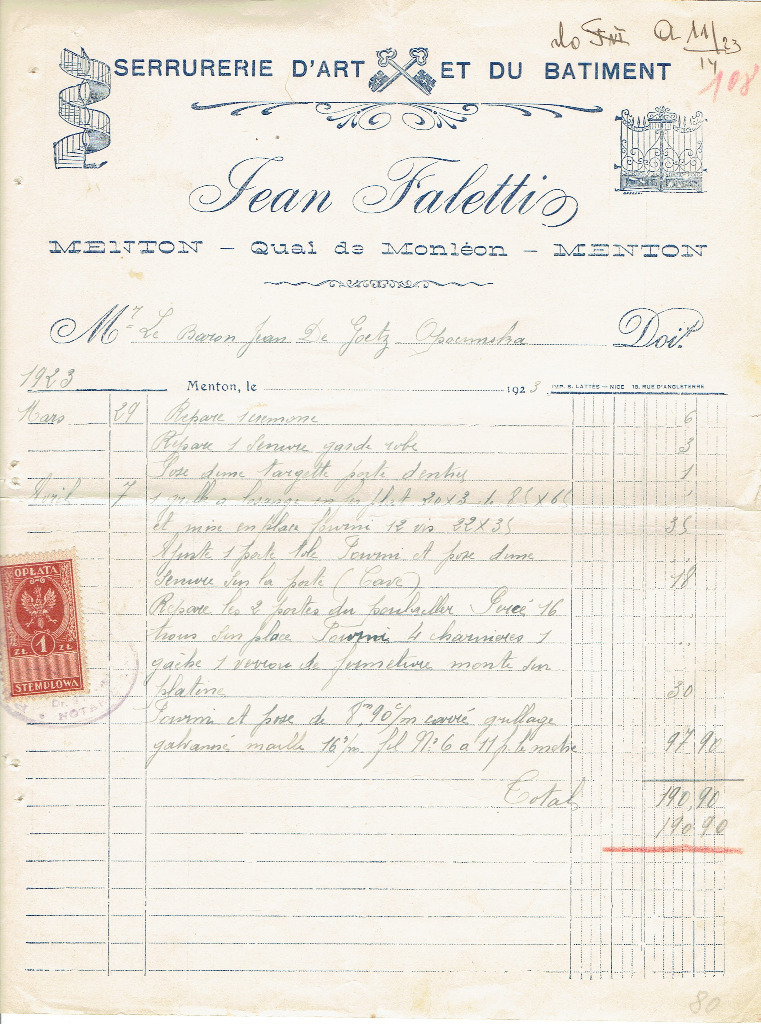 do A 11/23
14
108
SERRURERIE D'ART ET DU BATIMENT
Jean Faletti
MENTON — Quai de Monléon — MENTON
Mr Le Baron Jean De Goetz Doit
1923
Menton, le 1923 IMP. S. LATTES — NICE 15, RUE D'ANGLETERRE
Mars 29 Repare 1 cremone 6
Repare 1 Serrure garde robe 3
Pose dune targette porte dentree 1
Avril 7 1 grille a losange en fer plat 20x3 de 85x65
et mise en place fourni 12 vis 22x35 35
Ajuste 1 porte tole Fourni et pose dune
Serrure Sur la porte (Cave) 18
Repare les 2 portes du poulailler Percé 16
trous Sur place Fourni 4 charnieres 1
gache 1 verrou de fermeture monté sur
platine 30
Fourni et pose de 8m90c/m carré grillage
galvanisé maille 16m/m fil No 6 a 11f le metre 97,90
Total 190,90
190.90
OPŁATA
ZŁ 1 ZŁ
STEMPLOWA
NOTA
80